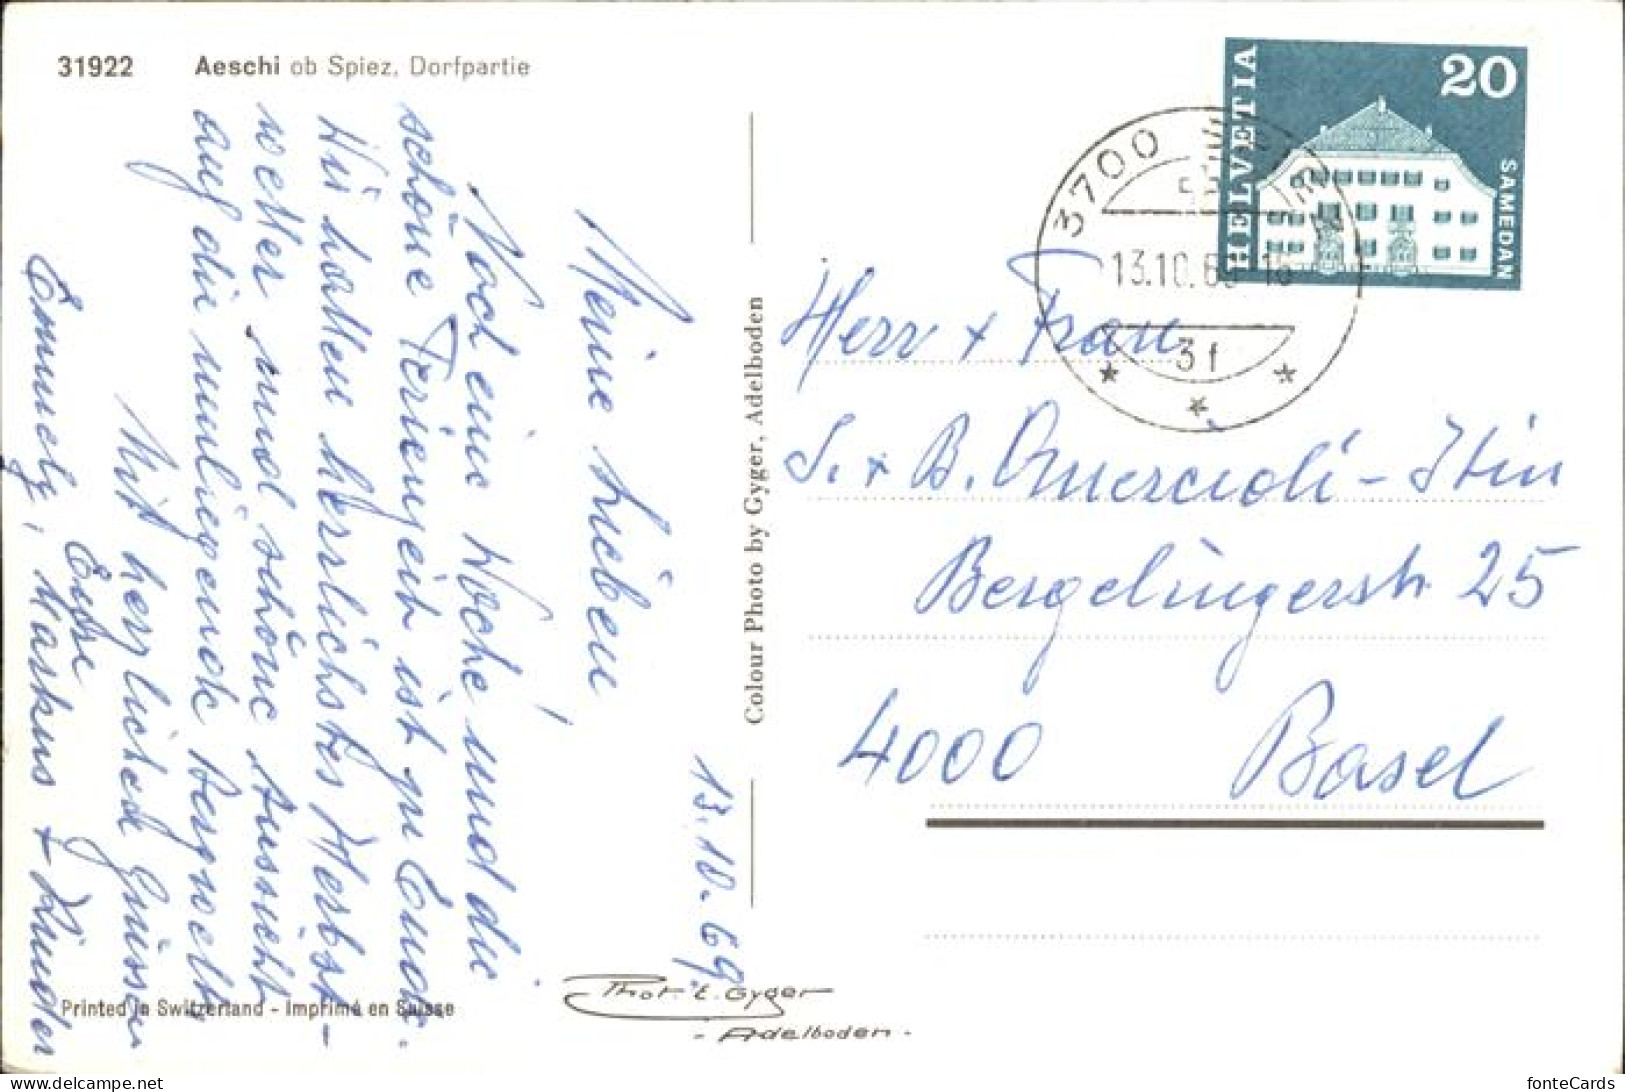 31922 Aeschi ob Spiez, Dorfpartie
13.10.69
Meine Lieben,
Noch eine Woche und die
schöne Ferienzeit ist zu Ende.
Wir hatten herrlichstes Herbst-
wetter und schöne Aussicht
auf die umliegende Bergwelt.
Mit herzlichen Grüssen
Eure
Emmely, Markus + Kinder
Printed in Switzerland - Imprimé en Suisse
Phot. E. Gyger
- Adelboden -
Colour Photo by Gyger, Adelboden
HELVETIA
20
SAMEDAN
3700
13.10.69-16
3f
Herr + Frau
S. + B. Quercioli-Itin
Bergalingerstr 25
4000 Basel
fonteCards